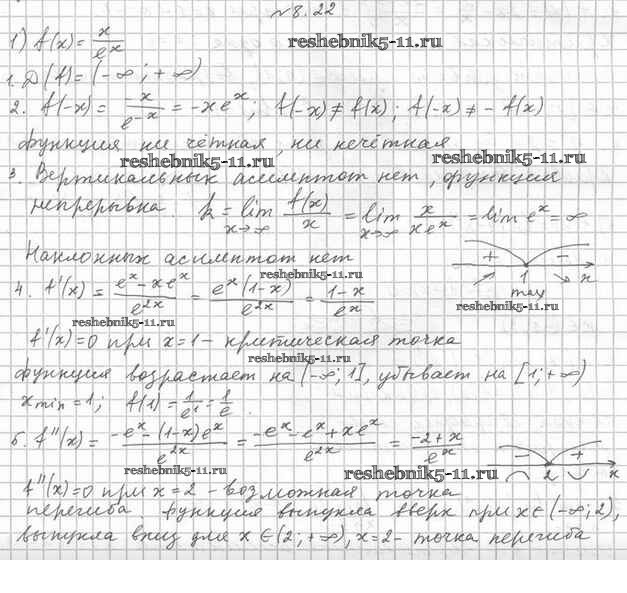 №8.22
1) f(x) = x/e^x
reshebnik5-11.ru
1. D(f) = (-∞; +∞)
2. f(-x) = -x/e^{-x} = -xe^x; f(-x) ≠ f(x); f(-x) ≠ -f(x)
функция ни чётная, ни нечётная
reshebnik5-11.ru
reshebnik5-11.ru
3. Вертикальных асимптот нет, функция
непрерывна. k = lim x→∞ f(x)/x = lim x→∞ x/xe^x = lim e^x = ∞
Наклонных асимптот нет
+ - 1 max x
reshebnik5-11.ru
4. f'(x) = e^x - xe^x/e^{2x} = e^x(1-x)/e^{2x} = 1-x/e^x
reshebnik5-11.ru
reshebnik5-11.ru
f'(x) = 0 при x = 1 - критическая точка
reshebnik5-11.ru
функция возрастает на (-∞; 1], убывает на [1; +∞)
x min = 1; f(1) = 1/e^1 = 1/e.
reshebnik5-11.ru
5. f''(x) = -e^x - (1-x)e^x/e^{2x} = -e^x - e^x + xe^x/e^{2x} = -2+x/e^x
- + 2 x
reshebnik5-11.ru
reshebnik5-11.ru
f''(x) = 0 при x = 2 - возможная точка
перегиба функция выпукла вверх при x ∈ (-∞; 2),
выпукла вниз для x ∈ (2; +∞), x = 2 - точка перегиба